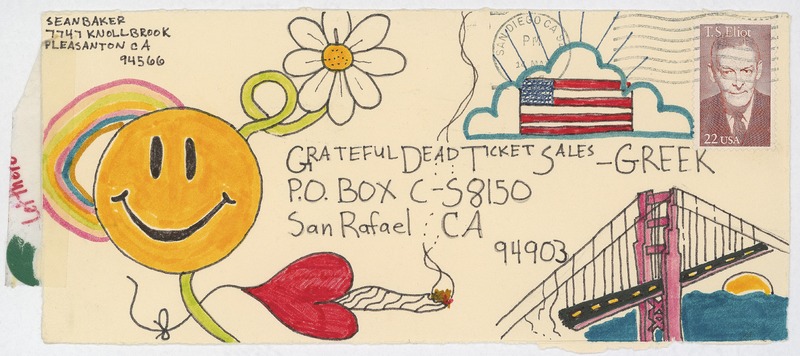 SEAN BAKER
7747 KNOLLBROOK
PLEASANTON CA
94566
SAN DIEGO CA
PM
T.S. Eliot
22 USA
GRATEFUL DEAD TICKET SALES - GREEK
P.O. BOX C-S8150
San Rafael CA
94903